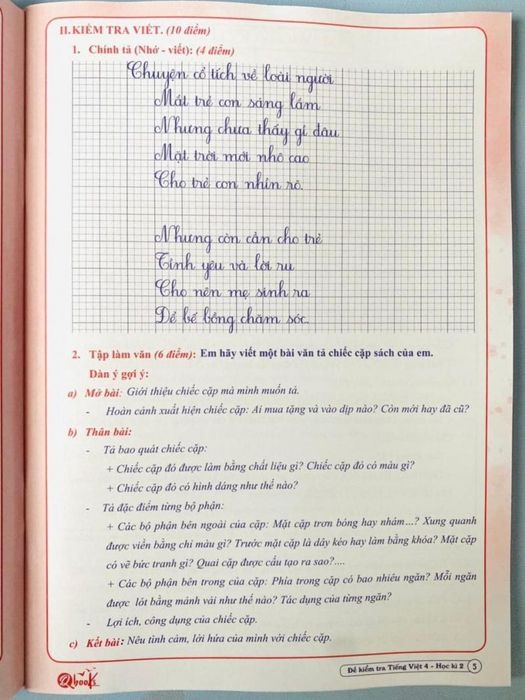 II. KIỂM TRA VIẾT. (10 điểm)
1. Chính tả (Nhớ - viết): (4 điểm)
Chuyện cổ tích về loài người
Mắt trẻ con sáng lắm
Nhưng chưa thấy gì đâu
Mặt trời mới nhô cao
Cho trẻ con nhìn rõ.
Nhưng còn cần cho trẻ
Tình yêu và lời ru
Cho nên mẹ sinh ra
Để bế bồng chăm sóc.
2. Tập làm văn (6 điểm): Em hãy viết một bài văn tả chiếc cặp sách của em.
Dàn ý gợi ý:
a) Mở bài: Giới thiệu chiếc cặp mà mình muốn tả.
- Hoàn cảnh xuất hiện chiếc cặp: Ai mua tặng và vào dịp nào? Còn mới hay đã cũ?
b) Thân bài:
- Tả bao quát chiếc cặp:
+ Chiếc cặp đó được làm bằng chất liệu gì? Chiếc cặp đó có màu gì?
+ Chiếc cặp đó có hình dáng như thế nào?
- Tả đặc điểm từng bộ phận:
+ Các bộ phận bên ngoài của cặp: Mặt cặp trơn bóng hay nhám...? Xung quanh
được viền bằng chỉ màu gì? Trước mặt cặp là dây kéo hay làm bằng khóa? Mặt cặp
có vẽ bức tranh gì? Quai cặp được cấu tạo ra sao?....
+ Các bộ phận bên trong của cặp: Phía trong cặp có bao nhiêu ngăn? Mỗi ngăn
được lót bằng mảnh vải như thế nào? Tác dụng của từng ngăn?
- Lợi ích, công dụng của chiếc cặp.
c) Kết bài: Nêu tình cảm, lời hứa của mình với chiếc cặp.
Qbook
Đề kiểm tra Tiếng Việt 4 - Học kì 2 5